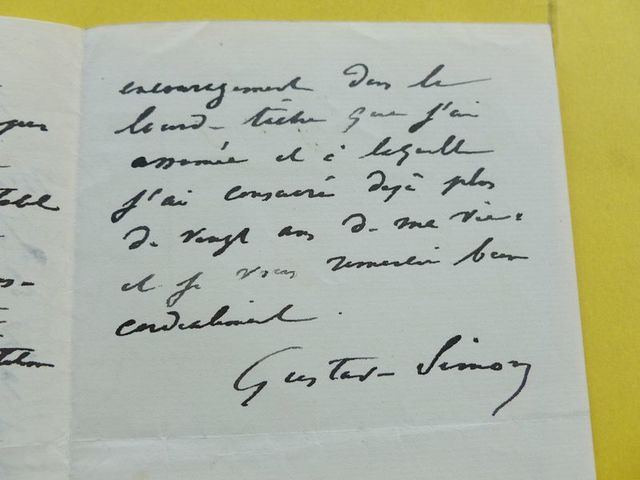 encouragement dans la
lourde tâche que j'ai
assumée et à laquelle
j'ai consacré déjà plus
de vingt ans de ma vie.
et je vous remercie bien
cordialement.
Gustave Simon